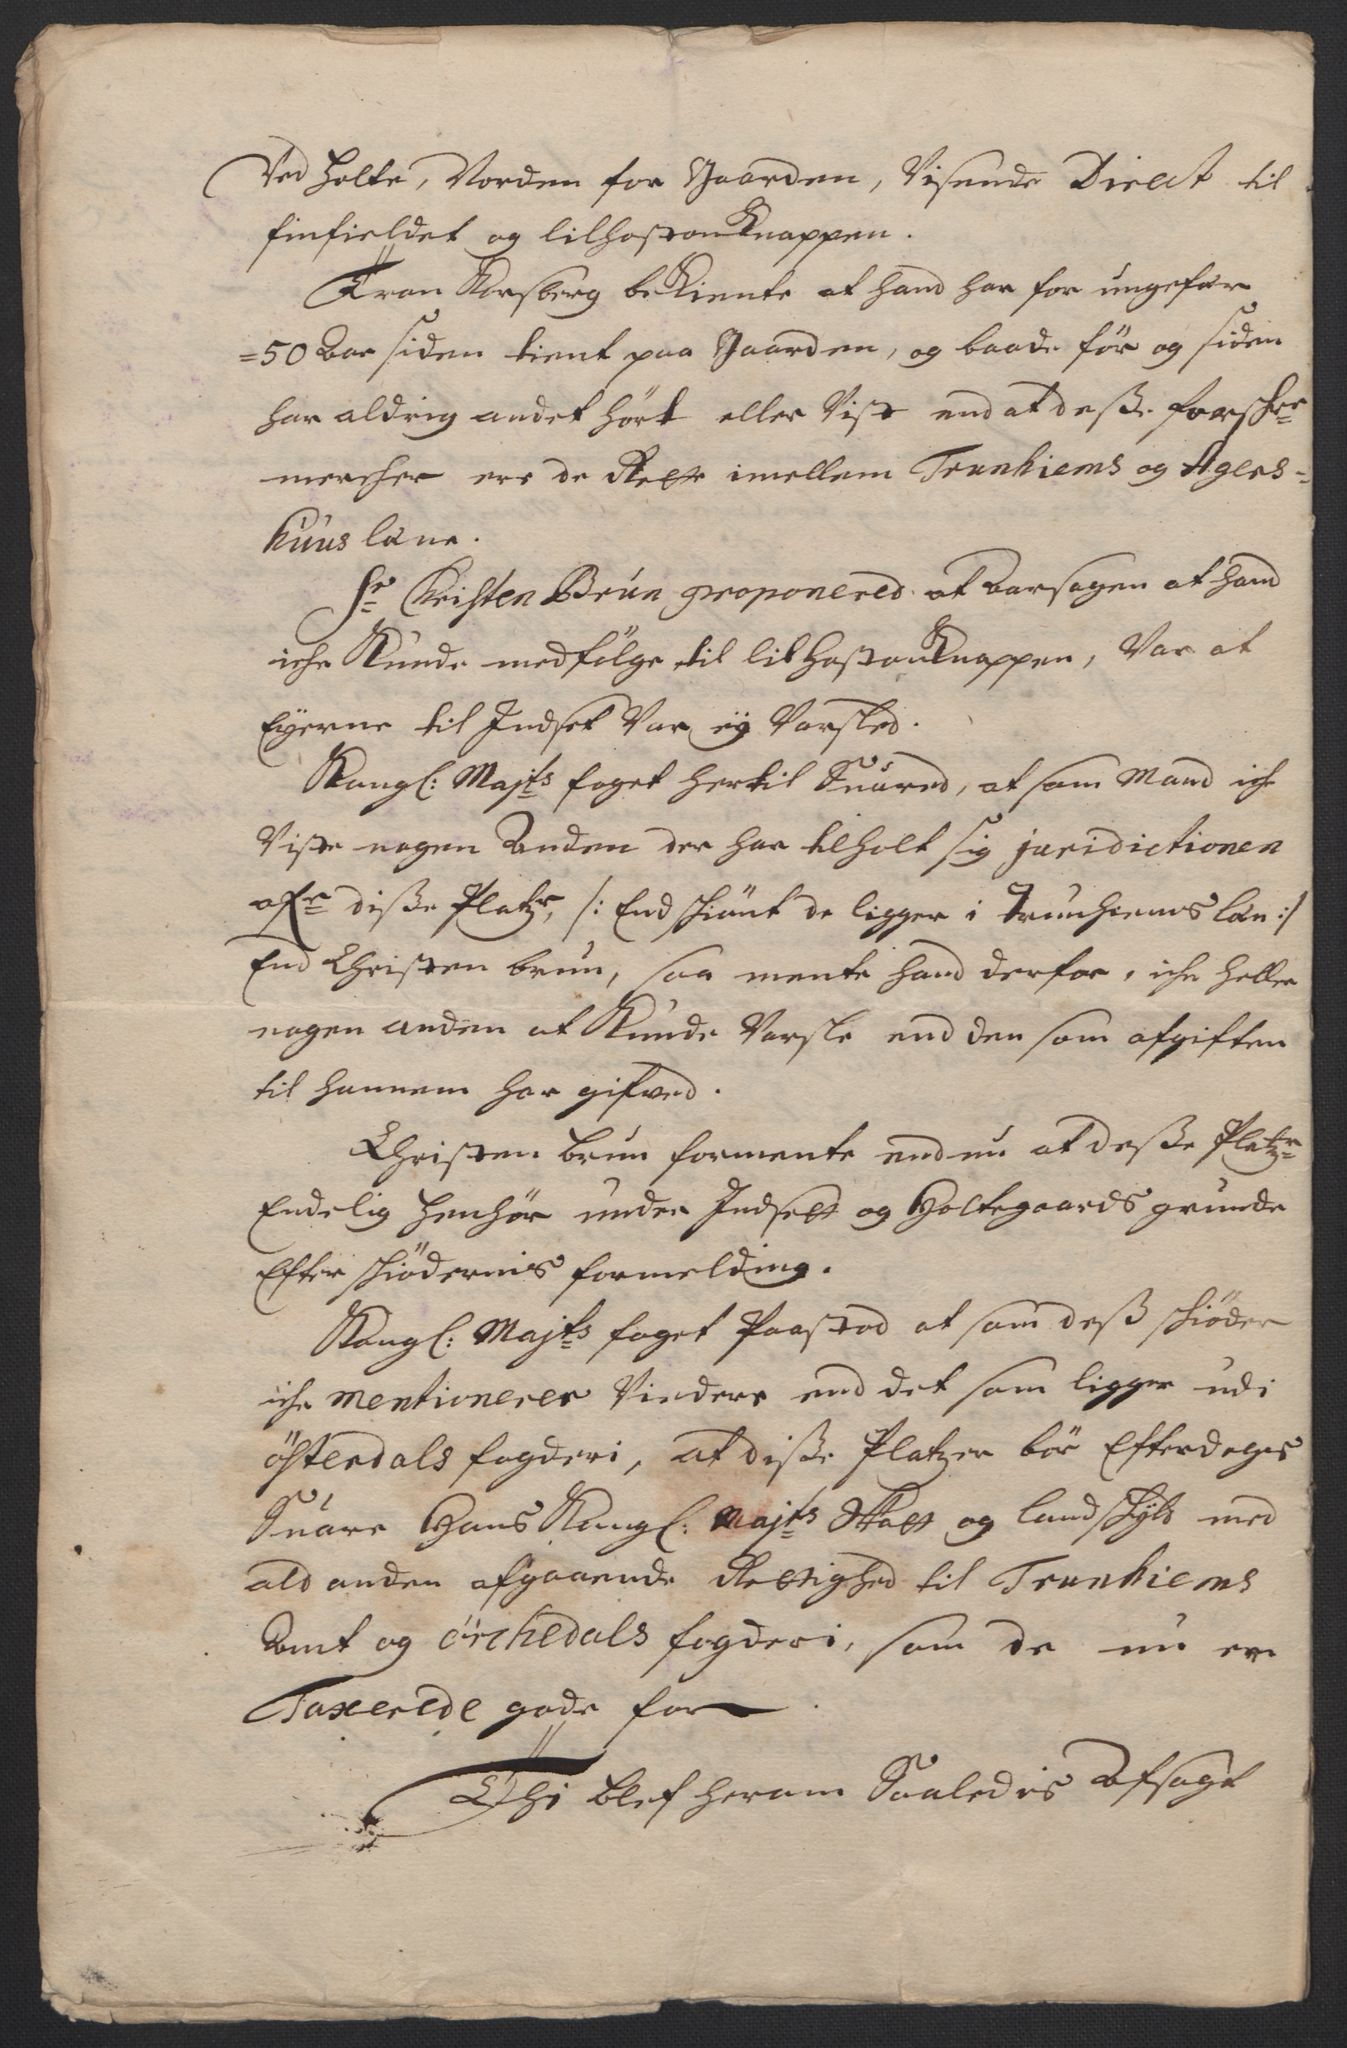 Ved Holte, Norden for Gaarden, Visende Direct til
finfieldet og lilhostonKnappen.
Tron Korsberg beKiente at hand har for ungefær
=50 Aar siden tient paa Gaarden, og baade før og siden
har aldrig andet hört eller Vist end at desse forsch:
mercher ere de Rette imellem Trunhiems og Agers=
huus læne.
Sr Christen Brun proponered at Aarsagen at hand
iche Kunde medfölge til lilhostonKnappen, Var at
Eyerne til Indset Var ey Varsled.
Kongl: Majts foget hertil Suared, at som Mand iche
Viste nogen Anden der har tilholt sig juridictionen
ofr disse Platzr, /: End schiönt de ligger i Trunhiems län :/
End Christen brun, saa mente hand derfor, iche heller
nogen anden at Kunde Varsle end den som afgiften
til hannem har gifved.
Christen brun formente endnu at desse Platzr
Endelig henhör under Indsett og Holtegaards grunde
Efter schiödernis formelding.
Kongl: Majts foget Paastod at som dess schiöder
iche Mentionerer Viedere end det som ligger udi
österdals fogderi, at disse Platzer bör Efterdages
Suare Hans Kongl: Majts Skatt og landschyld med
ald anden afgaaende Rettighed til Trunhiems
Amt og örchedals fogderi, som de nu er
Taxerede gode for
Thi blef herom Saaledis Afsagt